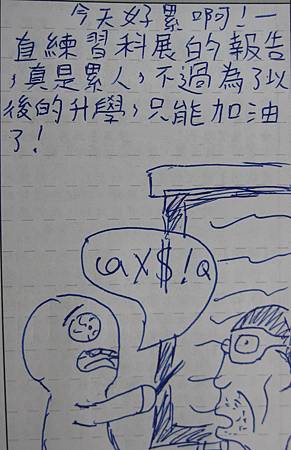 今天好累啊!一
直練習科展的報告
,真是累人,不過為了以
後的升學,只能加油
了!
@X$!Q